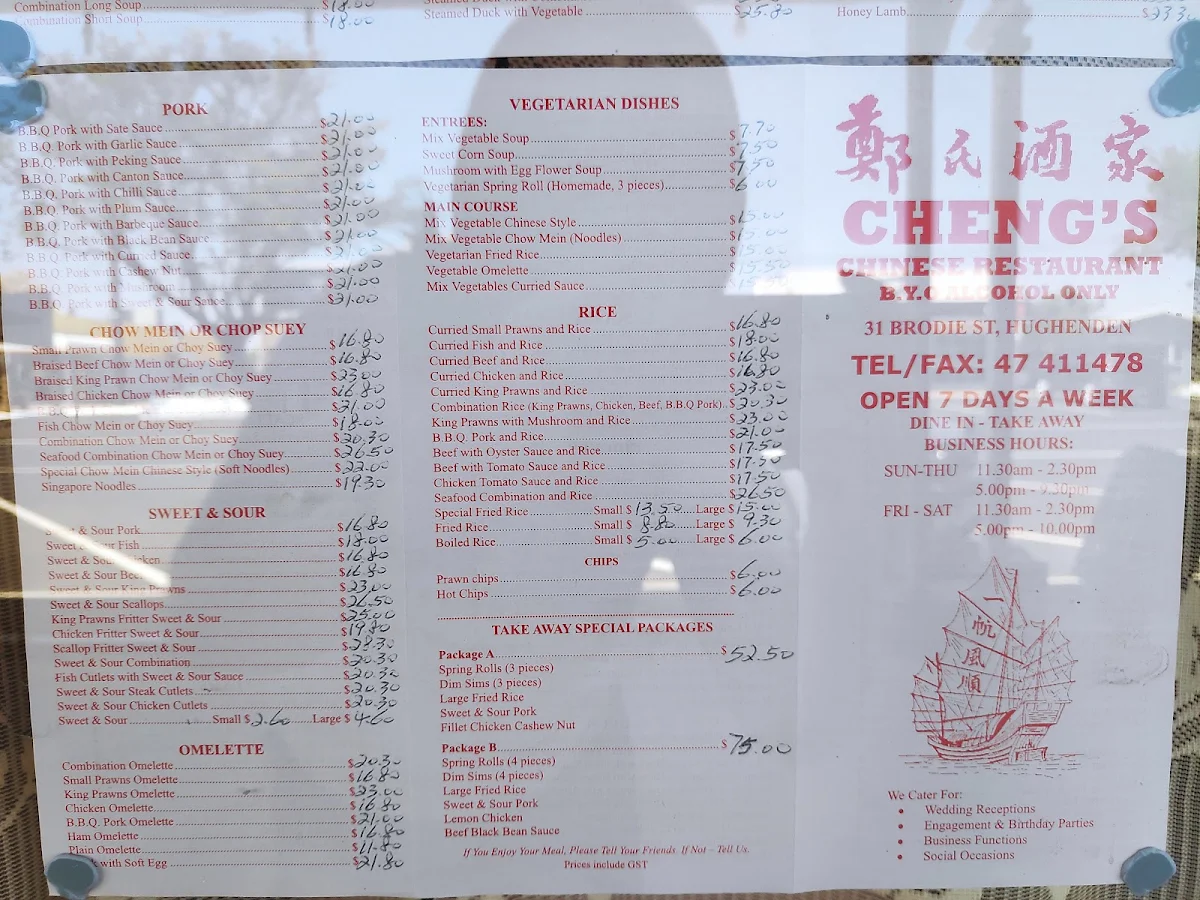 Combination Long Soup $18.00
Combination Short Soup $18.00
PORK
B.B.Q Pork with Sate Sauce $21.00
B.B.Q. Pork with Garlic Sauce $21.00
B.B.Q. Pork with Peking Sauce $21.00
B.B.Q. Pork with Canton Sauce $21.00
B.B.Q. Pork with Chilli Sauce $21.00
B.B.Q. Pork with Plum Sauce $21.00
B.B.Q. Pork with Barbeque Sauce $21.00
B.B.Q. Pork with Black Bean Sauce $21.00
B.B.Q. Pork with Curried Sauce $21.00
B.B.Q. Pork with Cashew Nut $21.00
B.B.Q. Pork with Mushroom $21.00
B.B.Q. Pork with Sweet & Sour Sauce $21.00
CHOW MEIN OR CHOP SUEY
Small Prawn Chow Mein or Choy Suey $16.80
Braised Beef Chow Mein or Choy Suey $16.80
Braised King Prawn Chow Mein or Choy Suey $23.00
Braised Chicken Chow Mein or Choy Suey $16.80
$21.00
Fish Chow Mein or Choy Suey $18.00
Combination Chow Mein or Choy Suey $20.30
Seafood Combination Chow Mein or Choy Suey $26.50
Special Chow Mein Chinese Style (Soft Noodles) $22.00
Singapore Noodles $19.30
SWEET & SOUR
& Sour Pork $16.80
Sweet Sour Fish $18.00
Sweet & Sour Chicken $16.80
Sweet & Sour Beef $16.80
Sweet & Sour King Prawns $23.00
Sweet & Sour Scallops $26.50
King Prawns Fritter Sweet & Sour $25.00
Chicken Fritter Sweet & Sour $19.80
Scallop Fritter Sweet & Sour $28.30
Sweet & Sour Combination $20.30
Fish Cutlets with Sweet & Sour Sauce $20.30
Sweet & Sour Steak Cutlets $20.30
Sweet & Sour Chicken Cutlets $20.30
Sweet & Sour Small $2.60 Large $4.60
OMELETTE
Combination Omelette $20.30
Small Prawns Omelette $16.80
King Prawns Omelette $23.00
Chicken Omelette $16.80
B.B.Q. Pork Omelette $21.00
Ham Omelette $16.80
Plain Omelette $11.80
with Soft Egg $21.80
Steamed Duck with Vegetable $25.80
VEGETARIAN DISHES
ENTREES:
Mix Vegetable Soup $7.70
Sweet Corn Soup $7.50
Mushroom with Egg Flower Soup $7.50
Vegetarian Spring Roll (Homemade, 3 pieces) $6.00
MAIN COURSE
Mix Vegetable Chinese Style $15.00
Mix Vegetable Chow Mein (Noodles) $15.00
Vegetarian Fried Rice $15.00
Vegetable Omelette $15.50
Mix Vegetables Curried Sauce
RICE
Curried Small Prawns and Rice $16.80
Curried Fish and Rice $18.00
Curried Beef and Rice $16.80
Curried Chicken and Rice $16.80
Curried King Prawns and Rice $23.00
Combination Rice (King Prawns, Chicken, Beef, B.B.Q Pork) $20.30
King Prawns with Mushroom and Rice $23.00
B.B.Q. Pork and Rice $21.00
Beef with Oyster Sauce and Rice $17.50
Beef with Tomato Sauce and Rice $17.50
Chicken Tomato Sauce and Rice $17.50
Seafood Combination and Rice $26.50
Special Fried Rice Small $13.50 Large $15.00
Fried Rice Small $8.80 Large $9.30
Boiled Rice Small $5.00 Large $6.00
CHIPS
Prawn chips $6.00
Hot Chips $6.00
TAKE AWAY SPECIAL PACKAGES
Package A $52.50
Spring Rolls (3 pieces)
Dim Sims (3 pieces)
Large Fried Rice
Sweet & Sour Pork
Fillet Chicken Cashew Nut
Package B $75.00
Spring Rolls (4 pieces)
Dim Sims (4 pieces)
Large Fried Rice
Sweet & Sour Pork
Lemon Chicken
Beef Black Bean Sauce
If You Enjoy Your Meal, Please Tell Your Friends. If Not – Tell Us.
Prices include GST
Honey Lamb
鄭氏酒家
CHENG'S
CHINESE RESTAURANT
B.Y.O ALCOHOL ONLY
31 BRODIE ST, HUGHENDEN
TEL/FAX: 47 411478
OPEN 7 DAYS A WEEK
DINE IN - TAKE AWAY
BUSINESS HOURS:
SUN-THU 11.30am - 2.30pm
5.00pm - 9.30pm
FRI - SAT 11.30am - 2.30pm
5.00pm - 10.00pm
一帆風順
We Cater For:
• Wedding Receptions
• Engagement & Birthday Parties
• Business Functions
• Social Occasions